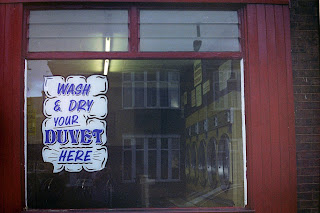 WASH
& DRY
YOUR
DUVET
HERE